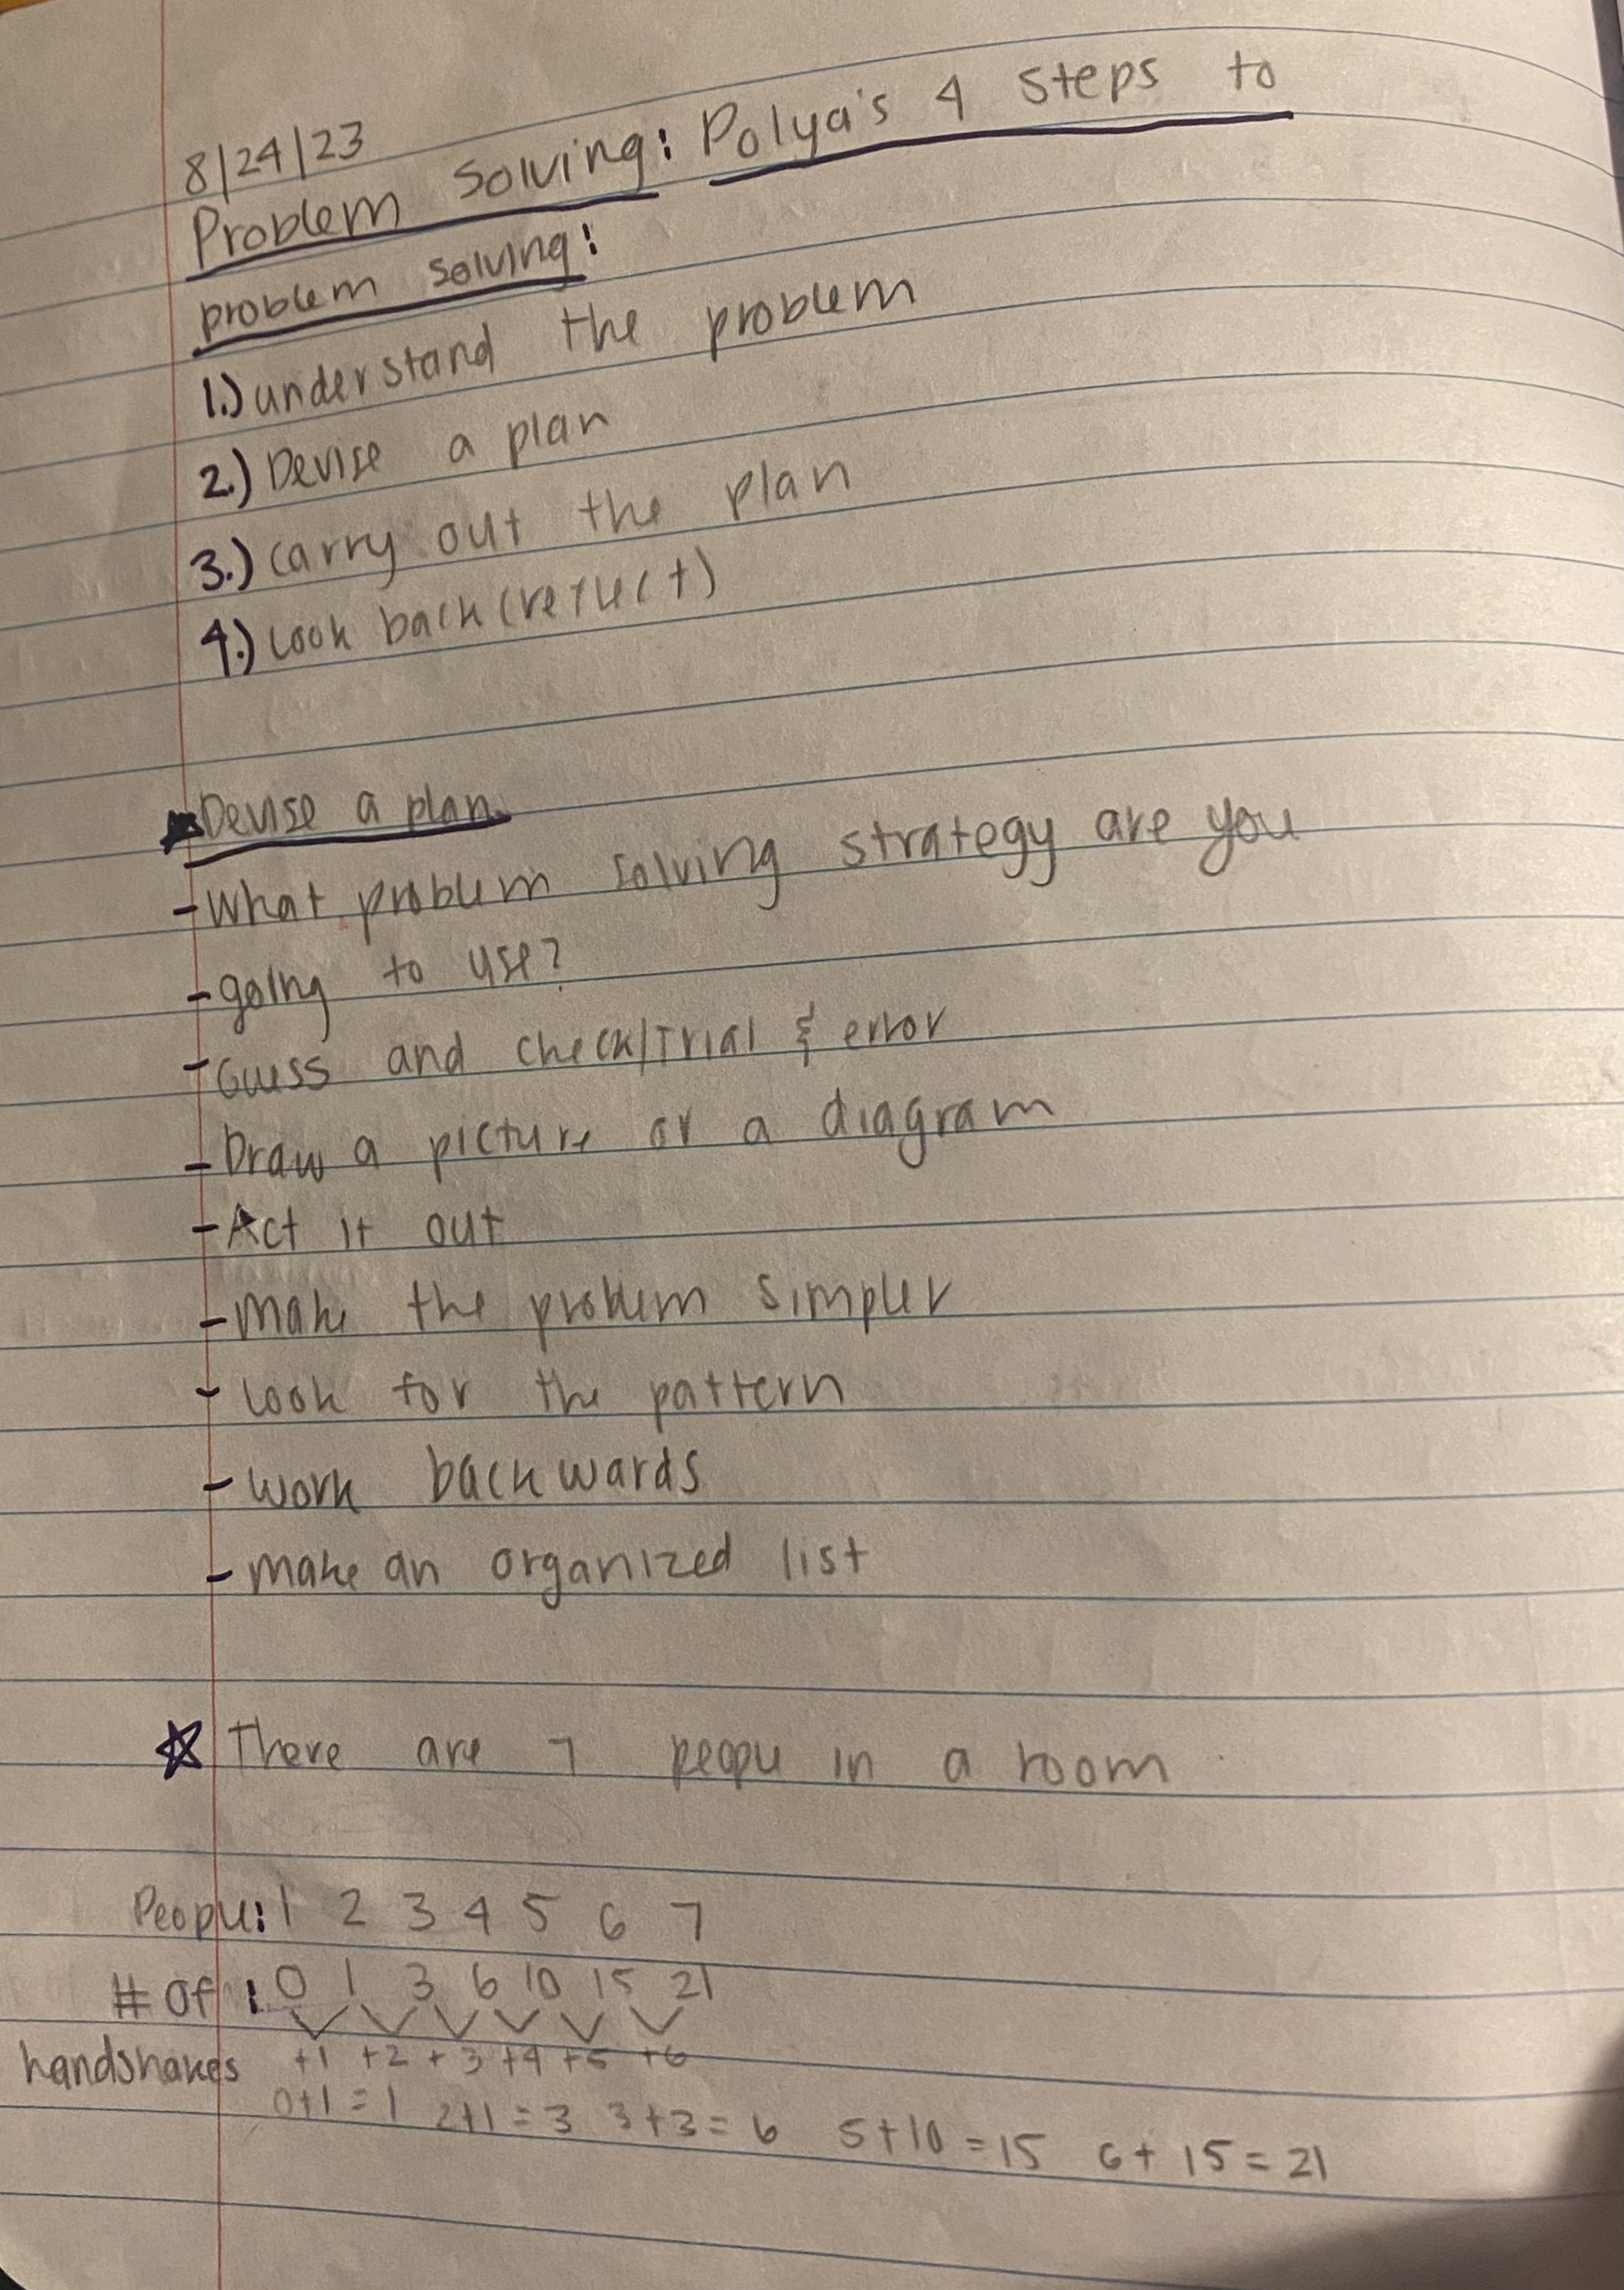 8/24/23
Problem Solving: Polya's 4 Steps to
problem solving:
1.) understand the problem
2.) Devise a plan
3.) carry out the plan
4.) Look back (reflect)
★ Devise a plan
- What problem solving strategy are you
- going to use?
- Guess and check/Trial & error
- Draw a picture or a diagram
- Act it out
- make the problem simpler
- look for the pattern
- work backwards
- make an organized list
☆ There are 7 people in a room
People: 1 2 3 4 5 6 7
# of : 0 1 3 6 10 15 21
handshakes +1 +2 +3 +4 +5 +6
0+1=1 2+1=3 3+3=6 5+10=15 6+15=21